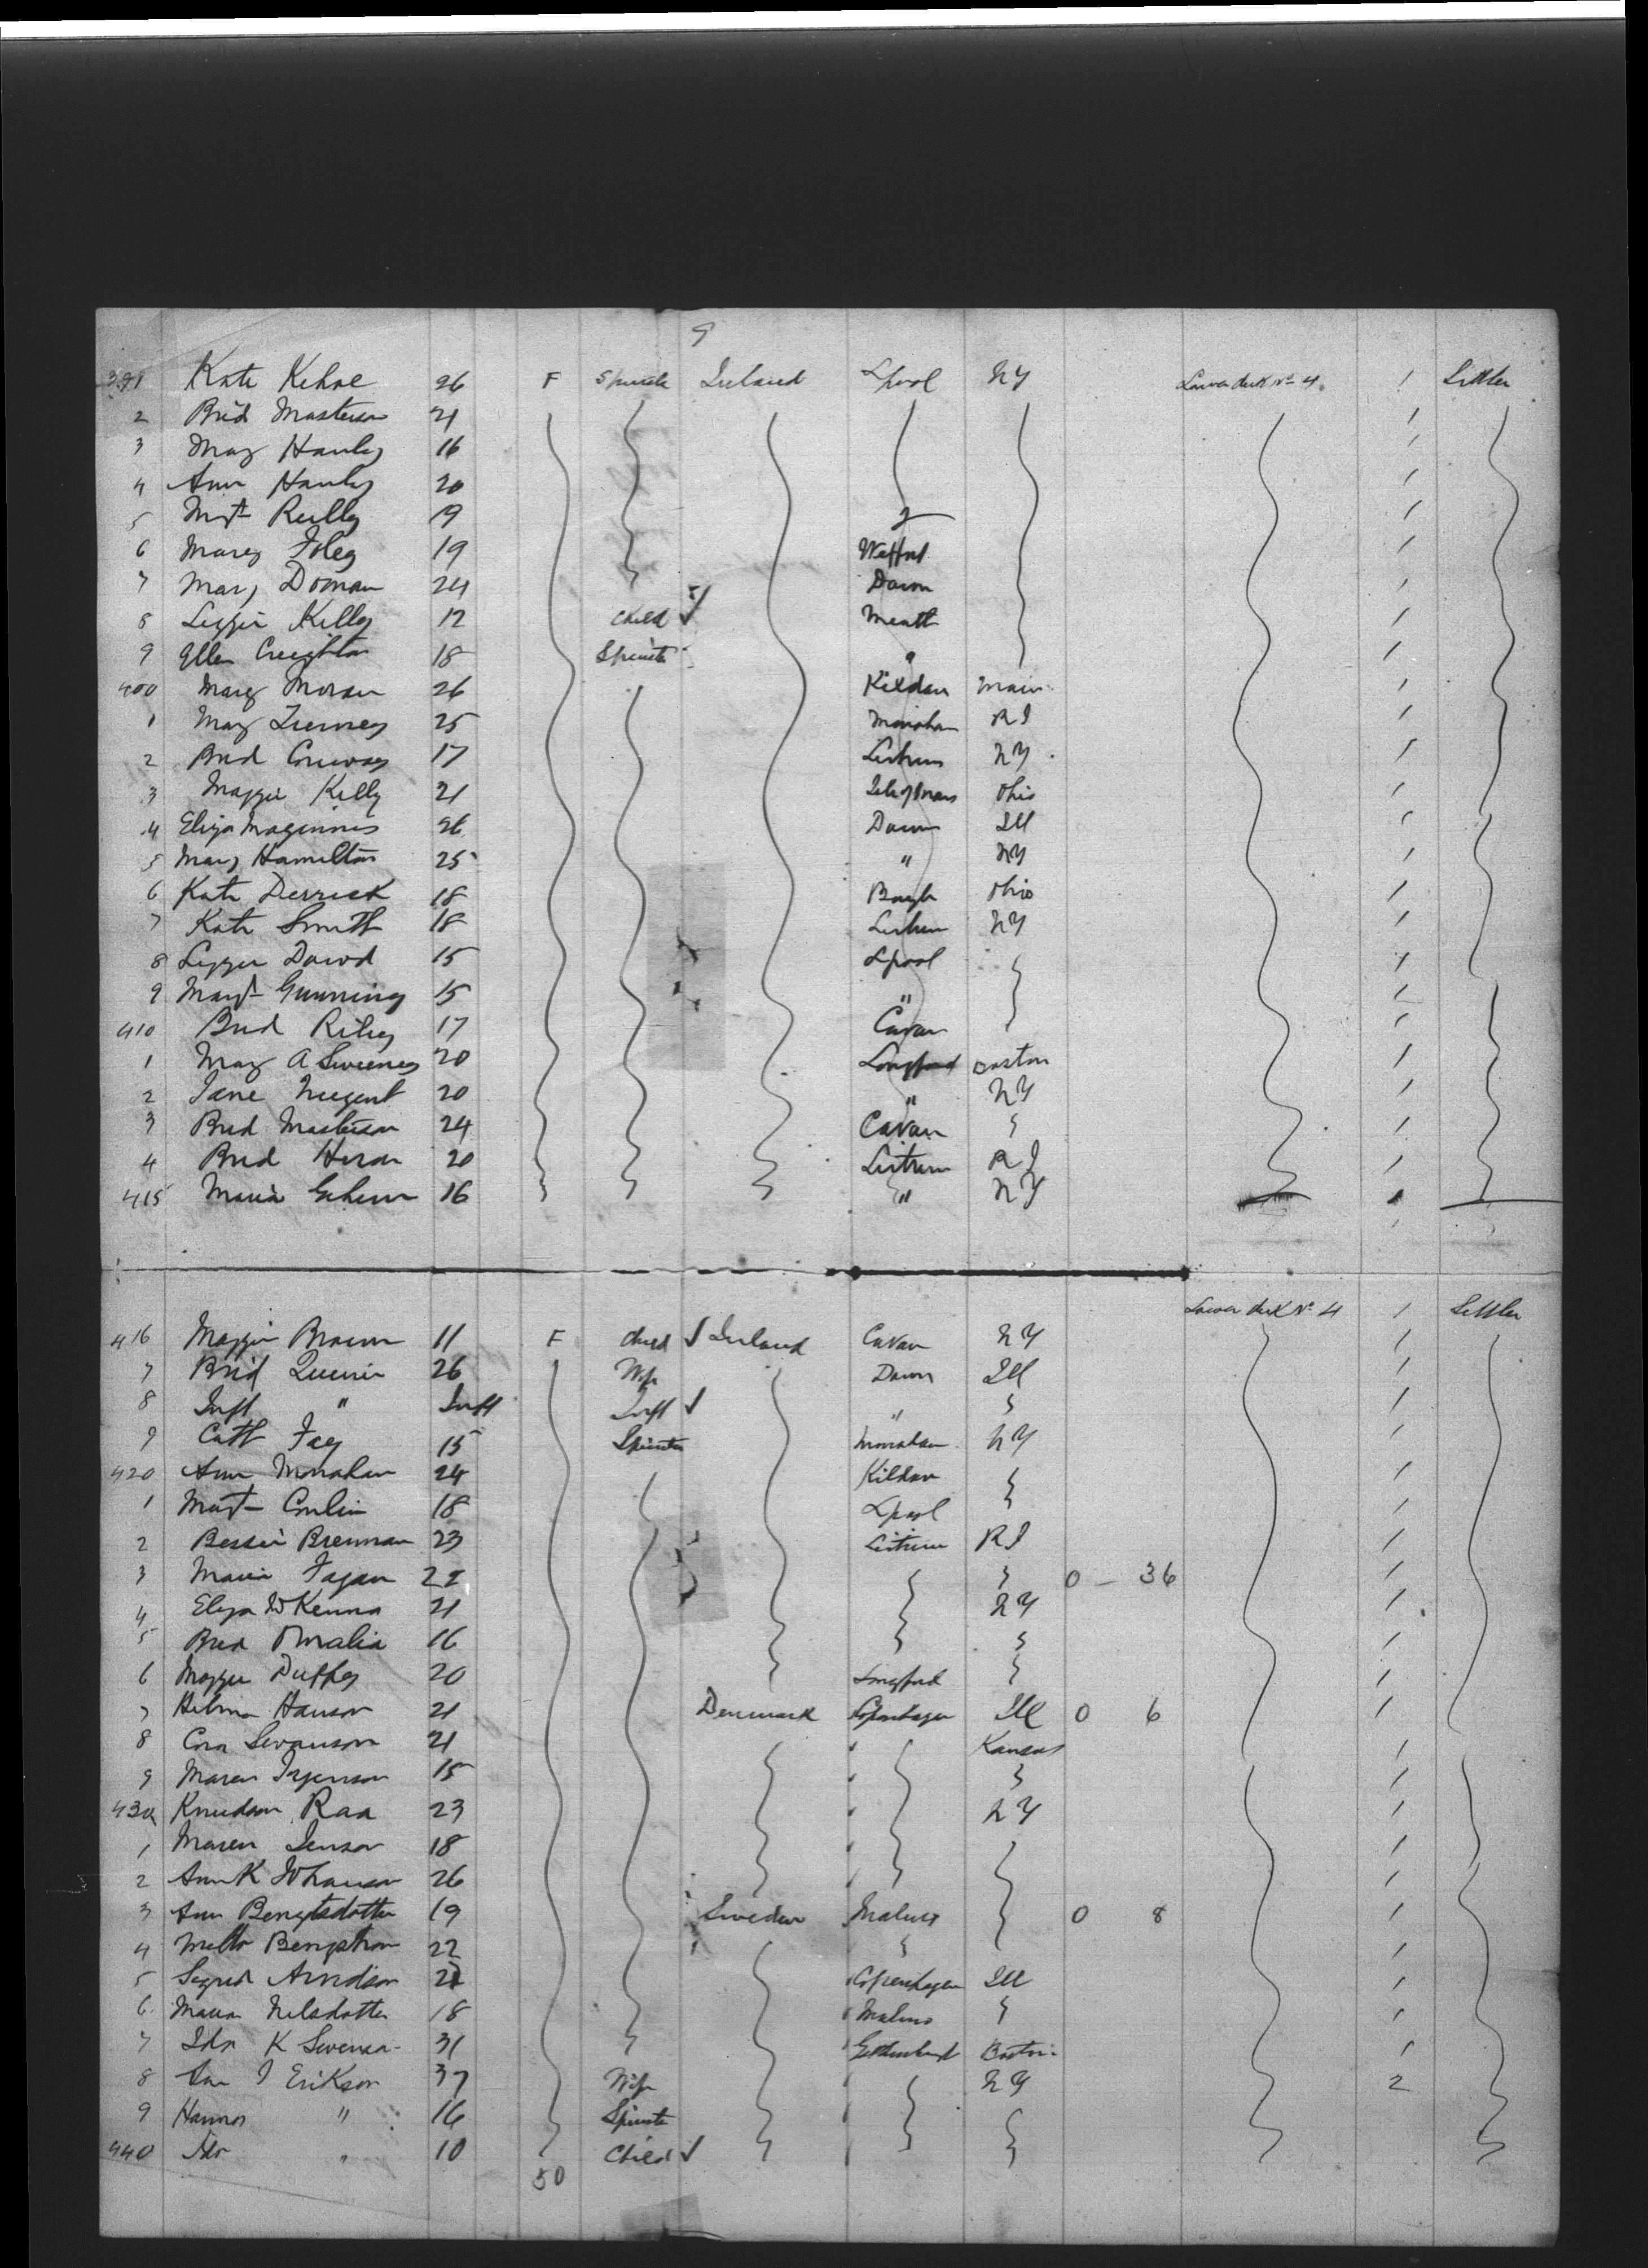 9
391 Kate Kehoe 26 F Spinster Ireland Lpool NY Lower deck No 4 1 Settler
2 Brid Masterson 21 /
3 Mary Hanley 16 /
4 Ann Hanley 20 /
5 Mgt Reilly 19 /
6 Mary Foley 19 Wexford /
7 Mary Doonan 24 Down /
8 Lizzie Kelly 12 Child ✓ Meath /
9 Ellen Creighton 18 Spinster " /
400 Mary Moran 26 Kildare Main /
1 Mary Tierney 25 Monahan RI /
2 Brid Conway 17 Leitrim NY /
3 Maggie Kelly 21 Isle of Man Ohio /
4 Eliza Maginnis 26 Down Ill /
5 Mary Hamilton 25 " NY /
6 Kate Derrick 18 Ohio /
7 Kate Smith 18 Leitrim NY /
8 Lizzie Dowd 15 Lpool /
9 Margt Gunning 15 " /
410 Brid Riley 17 Cavan /
1 Mary A Sweeney 20 Longford Boston /
2 Jane Nugent 20 " NY /
3 Brid Masterson 24 Cavan /
4 Brid Heran 20 Leitrim RI /
415 Maria 16 " NY
Lower deck No 4 / Settler
416 Maggie Brown 11 F Child ✓ Ireland Cavan NY /
7 Brid 26 Wife Down Ill /
8 Inft " Inft Inft ✓ " /
9 Cath Fay 15 Spinster Monahan NY /
420 Ann Monahan 24 Kildare /
1 Margt Conlin 18 Lpool /
2 Bessie Brennan 23 Leitrim RI /
3 Maria Fagan 22 0 – 36 /
4 Eliza McKenna 21 NY /
5 Brid OMalia 16 /
6 Maggie Duffy 20 Longford /
7 Helma Hanson 21 Denmark Copenhagen Ill 0 6 /
8 Cora Swanson 21 Kansas /
9 Maren 15 /
430 Knudson Raa 23 NY /
1 Maren Jenson 18 /
2 Ann K Johanson 26 /
3 Ann Bengtsdotter 19 Sweden Malmo 0 8 /
4 Bengstrom 22 /
5 Sigrid Arvidson 22 Copenhagen Ill /
6 Maria Nelsdotter 18 Malmo /
7 Ida K Swenson 31 Gothenburg Boston /
8 Ann J Erikson 37 Wife NY 2
9 Hanna " 16 Spinster
440 Ida " 10 Child ✓
50